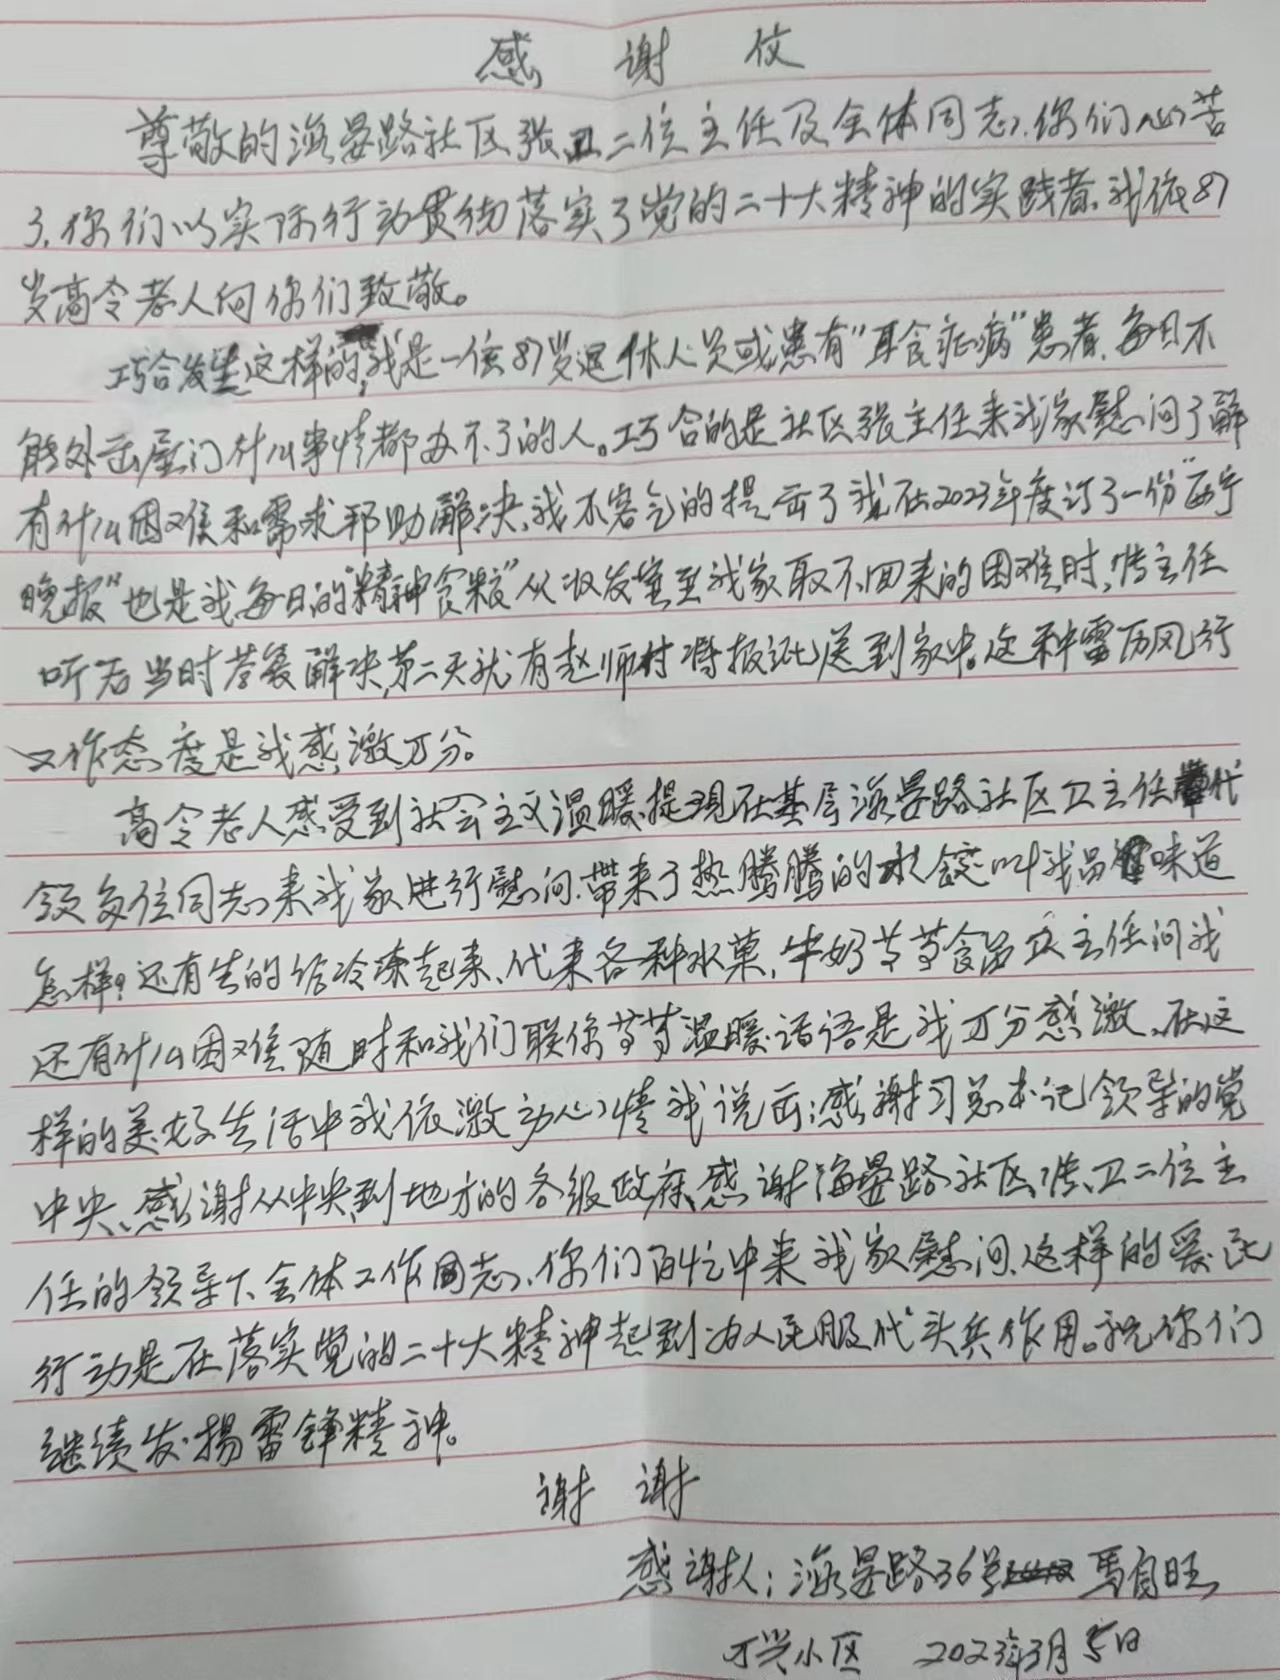 感 谢 仪
尊敬的海晏路社区张卫二位主任及全体同志,你们心苦
了,你们以实际行动贯彻落实了党的二十大精神的实践者,我依87
岁高令老人向你们致敬。
巧合发生这样的,我是一位87岁退休人员或患有"耳食症病"患者,每日不
能外出屋门什么事情都办不了的人。巧合的是社区张主任来我家慰问了解
有什么困难和需求邦助解决,我不客气的提出了我在2023年度订了一份"西宁
晚报"也是我每日的"精神食粮"从收发室至我家取不回来的困难时,张主任
听后当时答复解决,第二天就有赵师付将报纸送到家中。这种雷历风行
工作态度是我感激万分。
高令老人感受到社会主义温暖,提现在基层海晏路社区卫主任代
领多位同志来我家进行慰问,带来了热腾腾的水饺叫我品味道
怎样?还有生的给冷冻起来、代来各种水菓,牛奶等等食品卫主任问我
还有什么困难随时和我们联你等等温暖话语是我万分感激,在这
样的美好生活中我依激动心情我说出:感谢习总书记领导的党
中央、感谢从中央到地方的各级政府、感谢海晏路社区张、卫二位主
任的领导下全体工作同志、你们百忙中来我家慰问、这样的爱民
行动是在落实党的二十大精神起到为人民服代头兵作用。祝你们
继续发扬雷锋精神。
谢 谢
感谢人:海晏路36号 马自旺
万兴小区 2023年3月5日